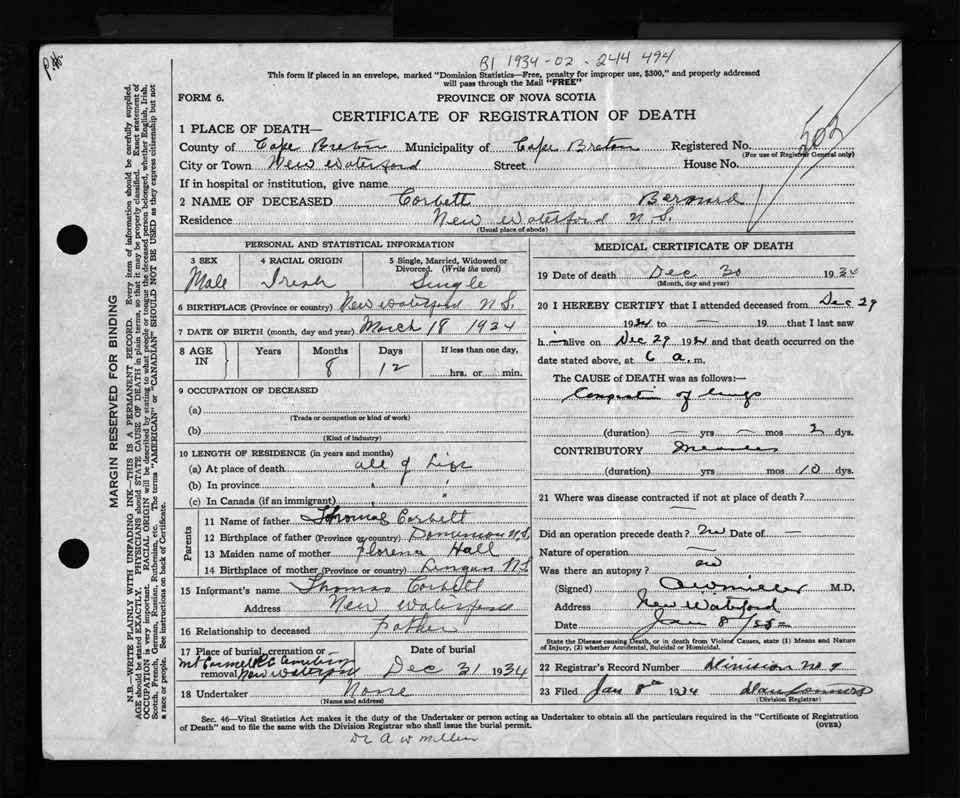 B1 1934-02-244494
This form if placed in an envelope, marked "Dominion Statistics—Free, penalty for improper use, $300," and properly addressed
will pass through the Mail "FREE"
FORM 6.
PROVINCE OF NOVA SCOTIA
CERTIFICATE OF REGISTRATION OF DEATH
503
1 PLACE OF DEATH—
County of Cape Breton Municipality of Cape Breton Registered No.
(For use of Registrar General only)
City or Town New Waterford Street House No.
If in hospital or institution, give name
2 NAME OF DECEASED Corbett Bernard
Residence New Waterford N.S.
(Usual place of abode)
PERSONAL AND STATISTICAL INFORMATION
3 SEX Male
4 RACIAL ORIGIN Irish
5 Single, Married, Widowed or
Divorced. (Write the word)
Single
6 BIRTHPLACE (Province or country) New Waterford N.S.
7 DATE OF BIRTH (month, day and year) March 18 1934
8 AGE IN Years Months 8 Days 12 If less than one day,
hrs. or min.
9 OCCUPATION OF DECEASED
(a)
(Trade or occupation or kind of work)
(b)
(Kind of industry)
10 LENGTH OF RESIDENCE (in years and months)
(a) At place of death all of life
(b) In province " "
(c) In Canada (if an immigrant) " "
Parents
11 Name of father Thomas Corbett
12 Birthplace of father (Province or country) Dominion N.S.
13 Maiden name of mother Florence Hall
14 Birthplace of mother (Province or country) Lingan N.S.
15 Informant's name Thomas Corbett
Address New Waterford
16 Relationship to deceased Father
17 Place of burial, cremation or
removal Mt Carmel R.C. Cemetery
New Waterford
Date of burial
Dec 31 1934
18 Undertaker None
(Name and address)
MEDICAL CERTIFICATE OF DEATH
19 Date of death Dec 30 1934
(Month, day and year)
20 I HEREBY CERTIFY that I attended deceased from Dec 29
1934 to — 19 that I last saw
h im alive on Dec 29 1934 and that death occurred on the
date stated above, at 6 a. m.
The CAUSE OF DEATH was as follows:—
Congestion of lungs
(duration) — yrs — mos 2 dys.
CONTRIBUTORY Measles
(duration) yrs mos 10 dys.
21 Where was disease contracted if not at place of death?
—
Did an operation precede death? No Date of —
Nature of operation —
Was there an autopsy? no
(Signed) A W Miller M.D.
Address New Waterford
Date Jan 8/35
State the Disease causing Death, or in death from Violent Causes, state (1) Means and Nature
of Injury, (2) whether Accidental, Suicidal or Homicidal.
22 Registrar's Record Number Division No 9
23 Filed Jan 8th 1934 Dan Connors
(Division Registrar)
Sec. 46—Vital Statistics Act makes it the duty of the Undertaker or person acting as Undertaker to obtain all the particulars required in the "Certificate of Registration
of Death" and to file the same with the Division Registrar who shall issue the burial permit.
(OVER)
Dr A W Miller
MARGIN RESERVED FOR BINDING
N.B.—WRITE PLAINLY WITH UNFADING INK—THIS IS A PERMANENT RECORD. Every item of information should be carefully supplied.
AGE should be stated EXACTLY. PHYSICIANS should STATE CAUSE OF DEATH in plain terms, so that it may be properly classified. Exact statement of
OCCUPATION is very important. RACIAL ORIGIN will be described by stating to what people or tongue the deceased person belonged, whether English, Irish,
Scotch, French, German, Russian, Ruthenian, etc. The terms "AMERICAN" or "CANADIAN" SHOULD NOT BE USED as they express citizenship but not
a race or people. See instructions on back of Certificate.